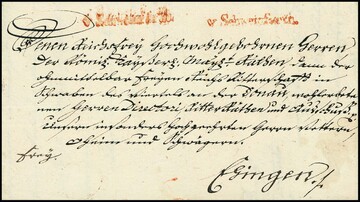 v. Schweinfurth
Einen Reichsfrey Hochwohlgebohrnen Herren
Der Römis. Kayserl. Mayst. Räthen Dann der
ohnmittelbar freyen Reichs Ritterschafft in
Schwaben des Viertels an der Donau, wohlerbete
nen Herren Directori Ritter Räthen und Ausschuß
Unsern insonders hochgeehrten Herrn Vettern
Oheim und Schwägern.
frey.
Ehingen